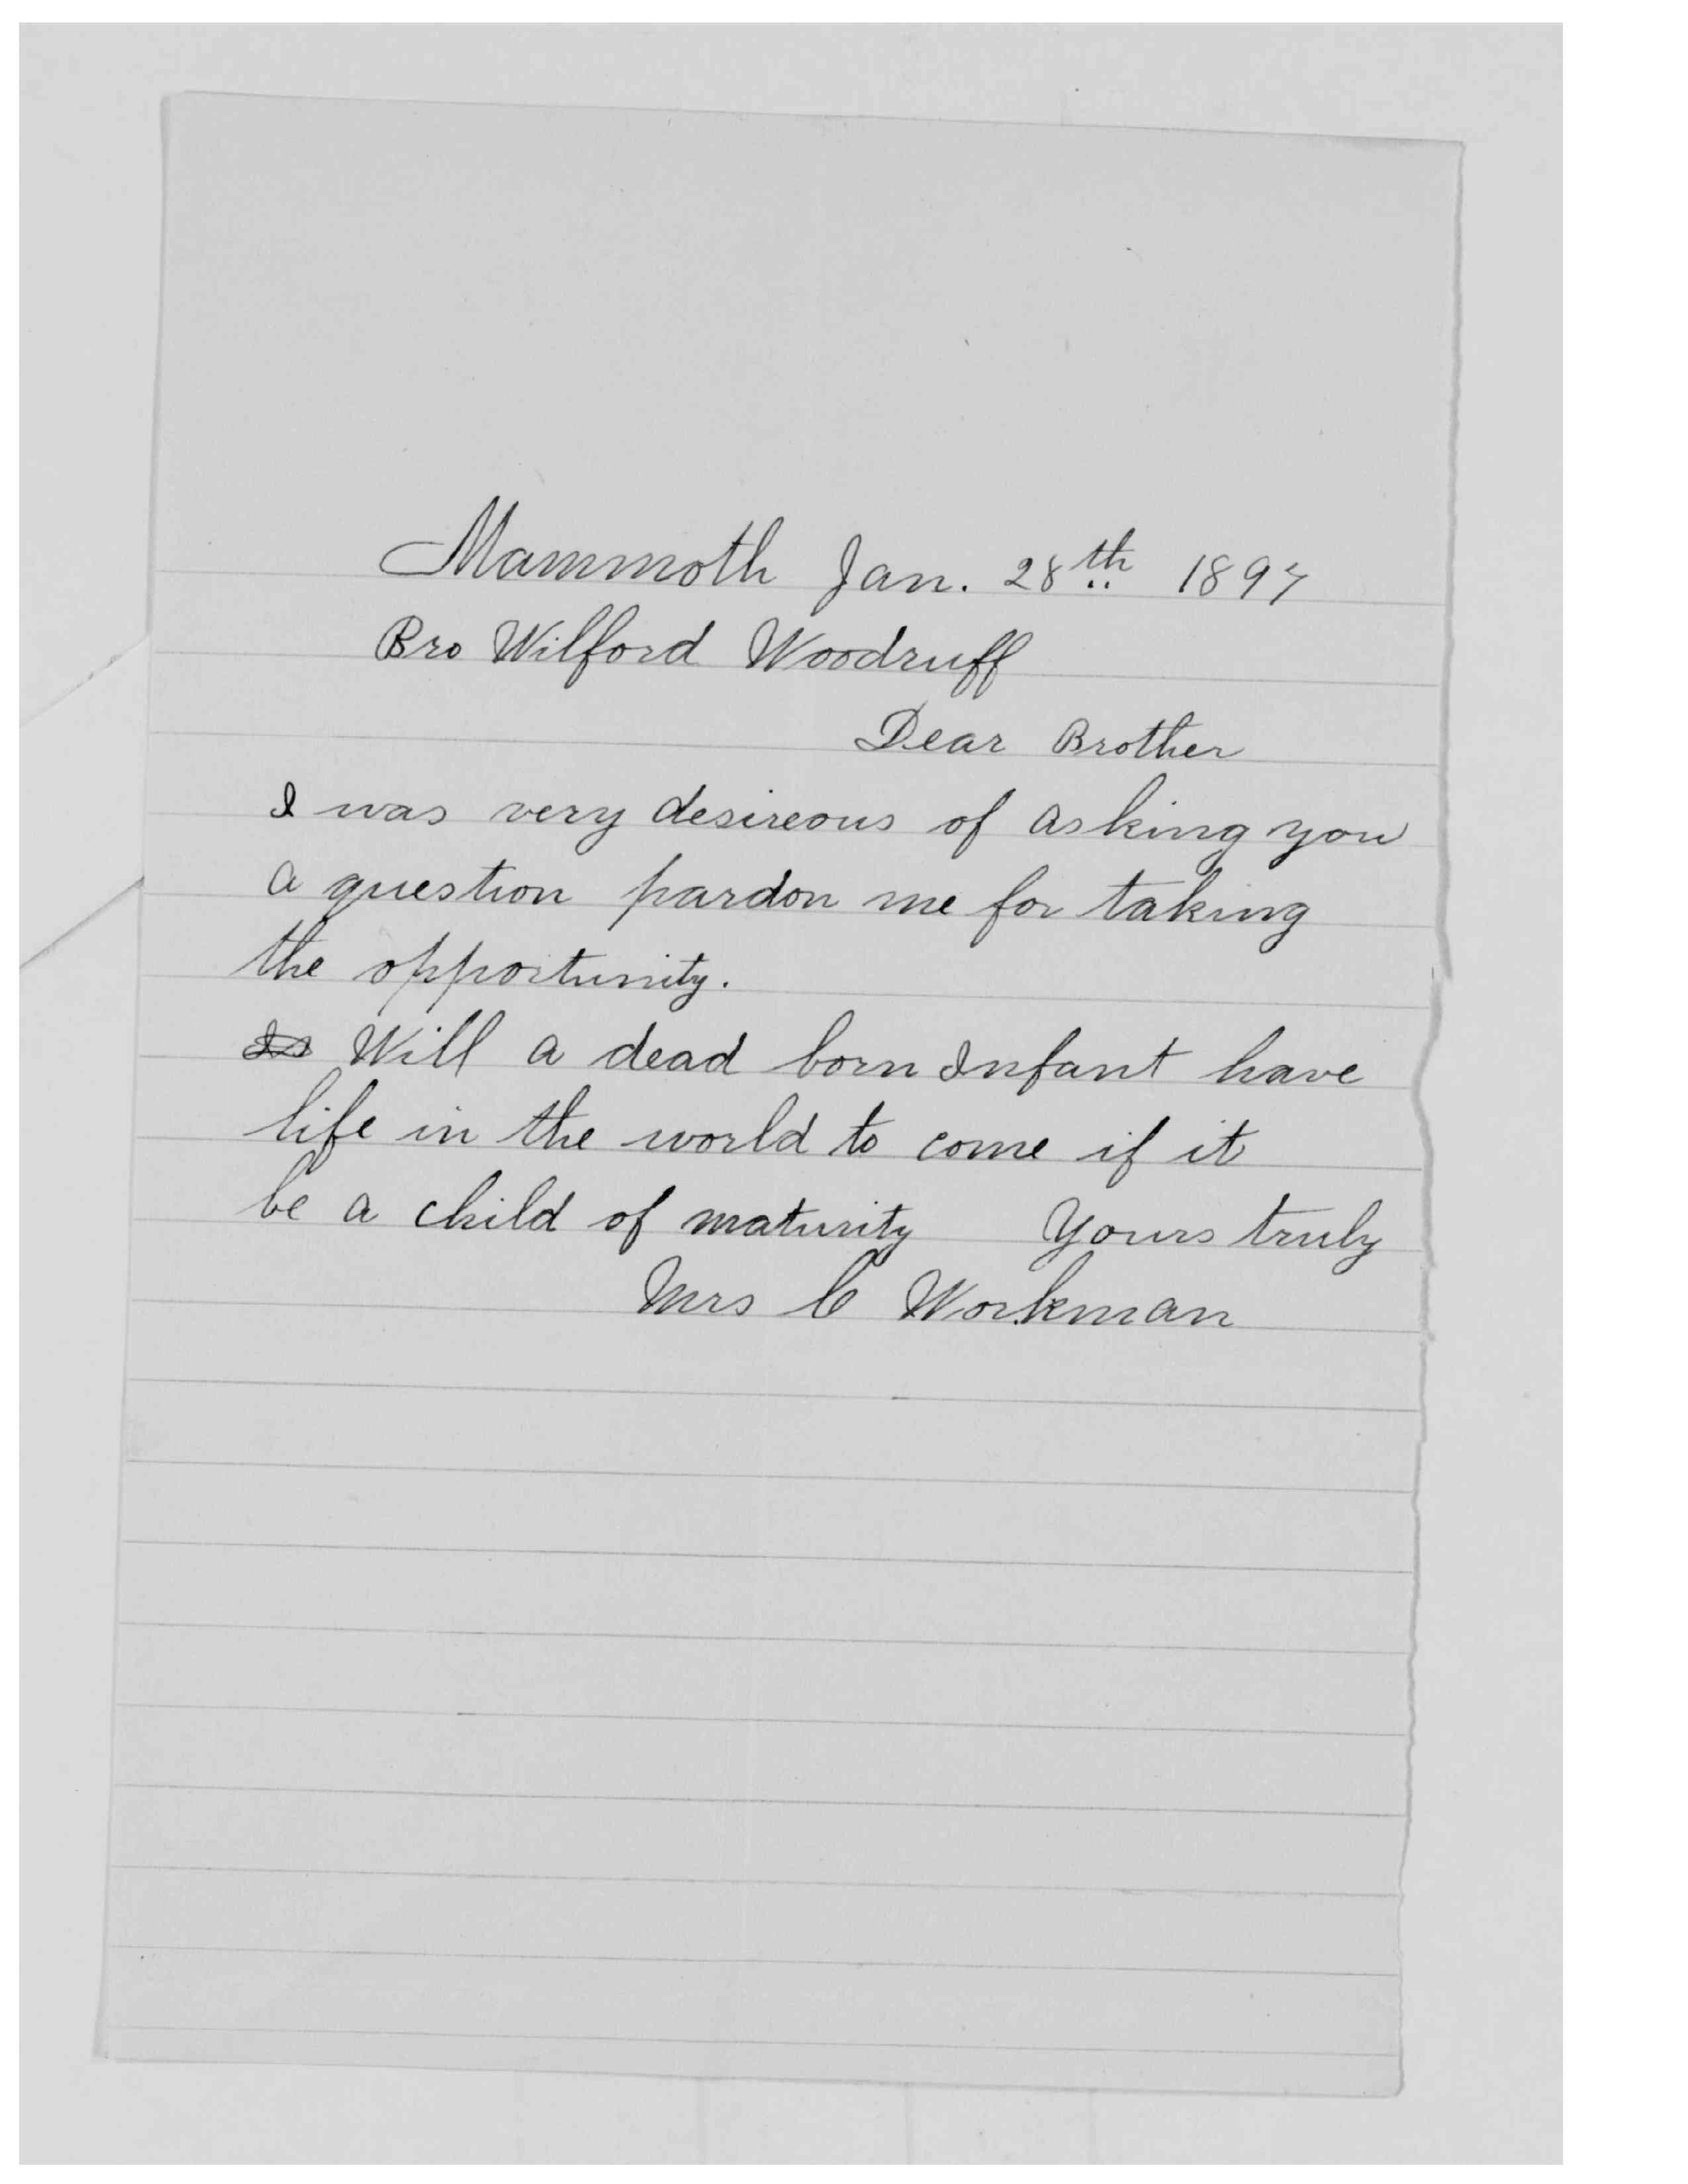 Mammoth Jan. 28th 1897
Bro Wilford Woodruff
Dear Brother
I was very desireous of asking you
a question pardon me for taking
the opportunity.
Is Will a dead born Infant have
life in the world to come if it
be a child of maturity Yours truly
Mrs C Workman